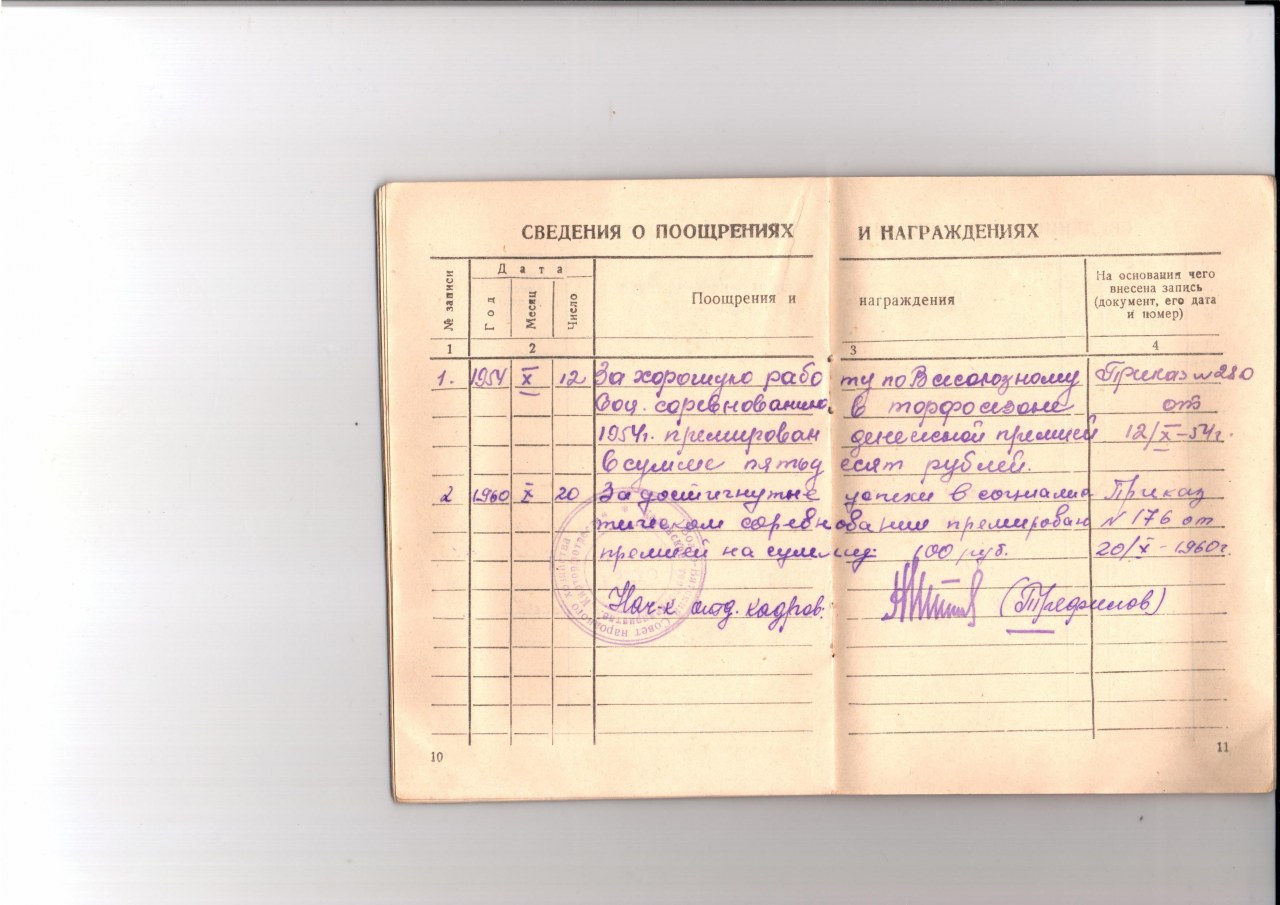 СВЕДЕНИЯ О ПООЩРЕНИЯХ И НАГРАЖДЕНИЯХ
№ записи
Дата
Год
Месяц
Число
Поощрения и награждения
На основании чего
внесена запись
(документ, его дата
и номер)
1 2 3 4
1. 1954 X 12 За хорошую работу по Всесоюзному Приказ № 280
Соц. соревнованию в торфосезоне от
1954г. премирован денежной премией 12/X-54г.
в сумме пятьдесят рублей.
2 1960 X 20 За достигнутые успехи в социалис Приказ
тическом соревновании премирован № 176 от
премией на сумму: 100 руб. 20/X-1960г.
Нач-к отд. кадров: (Трефилов)
Совет народного хозяйства
10 11